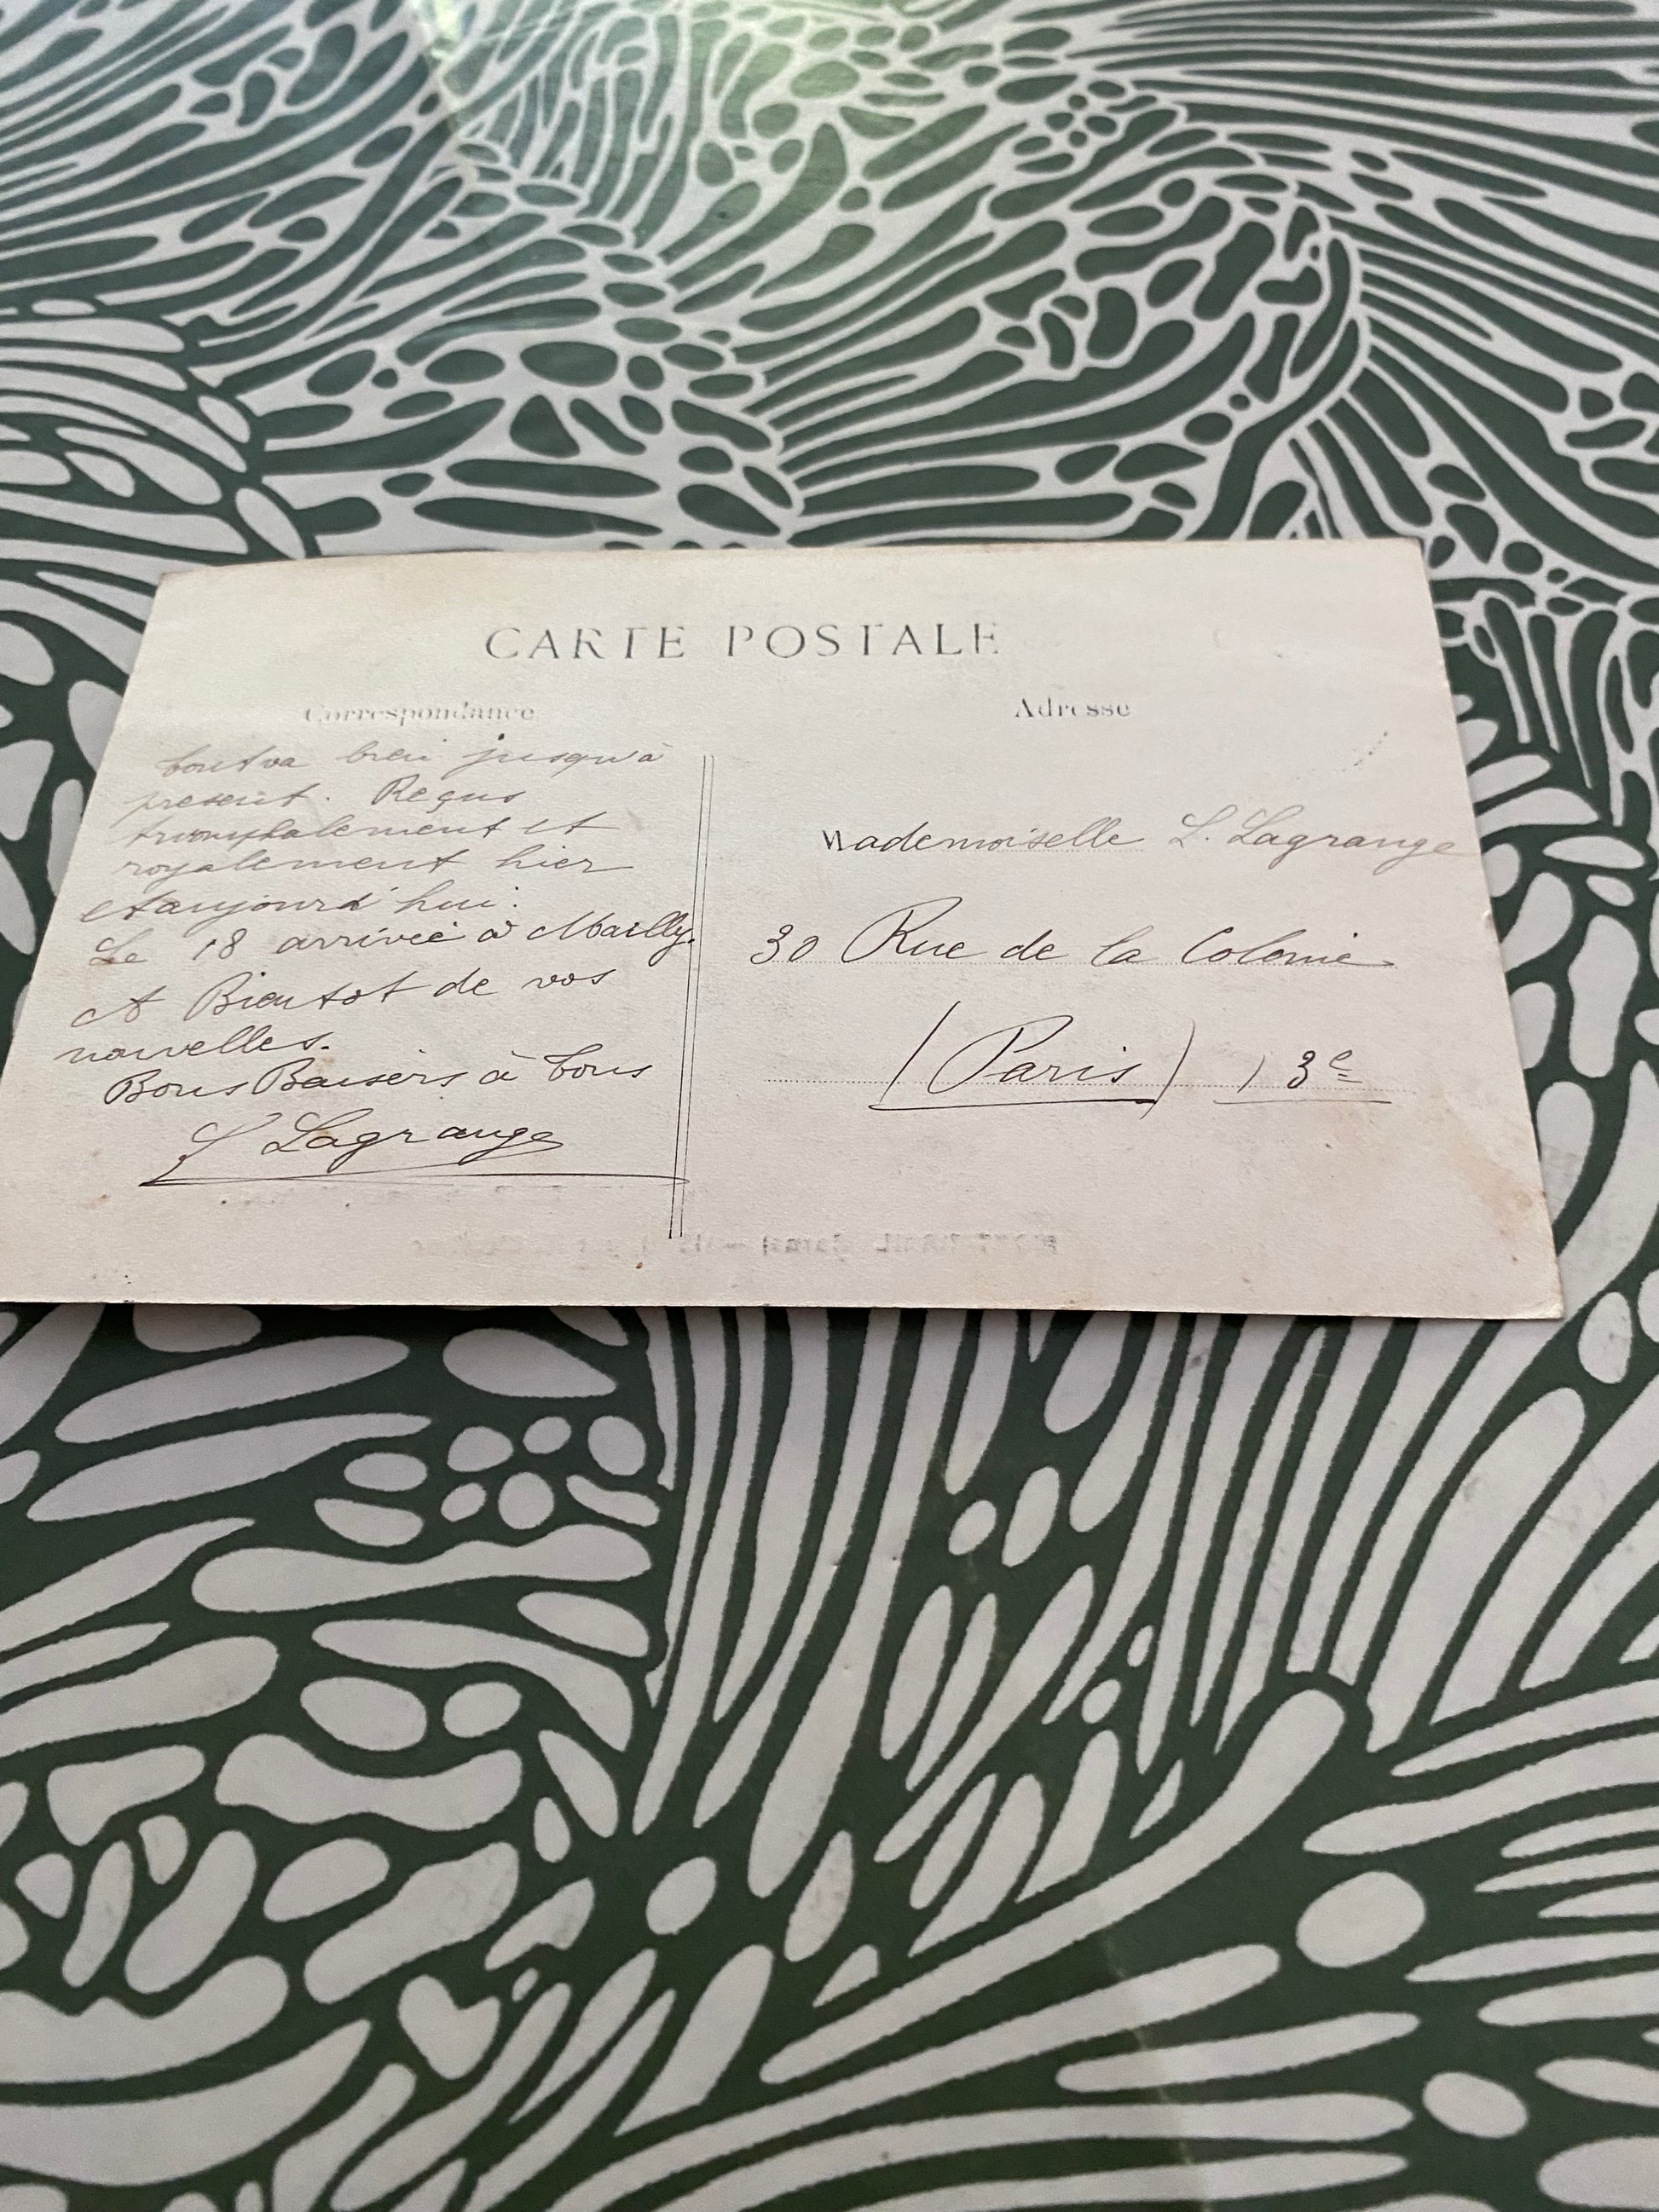 CARTE POSTALE
Correspondance
Adresse
tout va bien jusqu'à
present. Reçus
triomphalement et
royalement hier
et aujourd'hui.
Le 18 arrivée à Mailly.
A Bientot de vos
nouvelles.
Bons Baisers à tous
L Lagrange
Mademoiselle L. Lagrange
30 Rue de la Colonie
(Paris) 13e